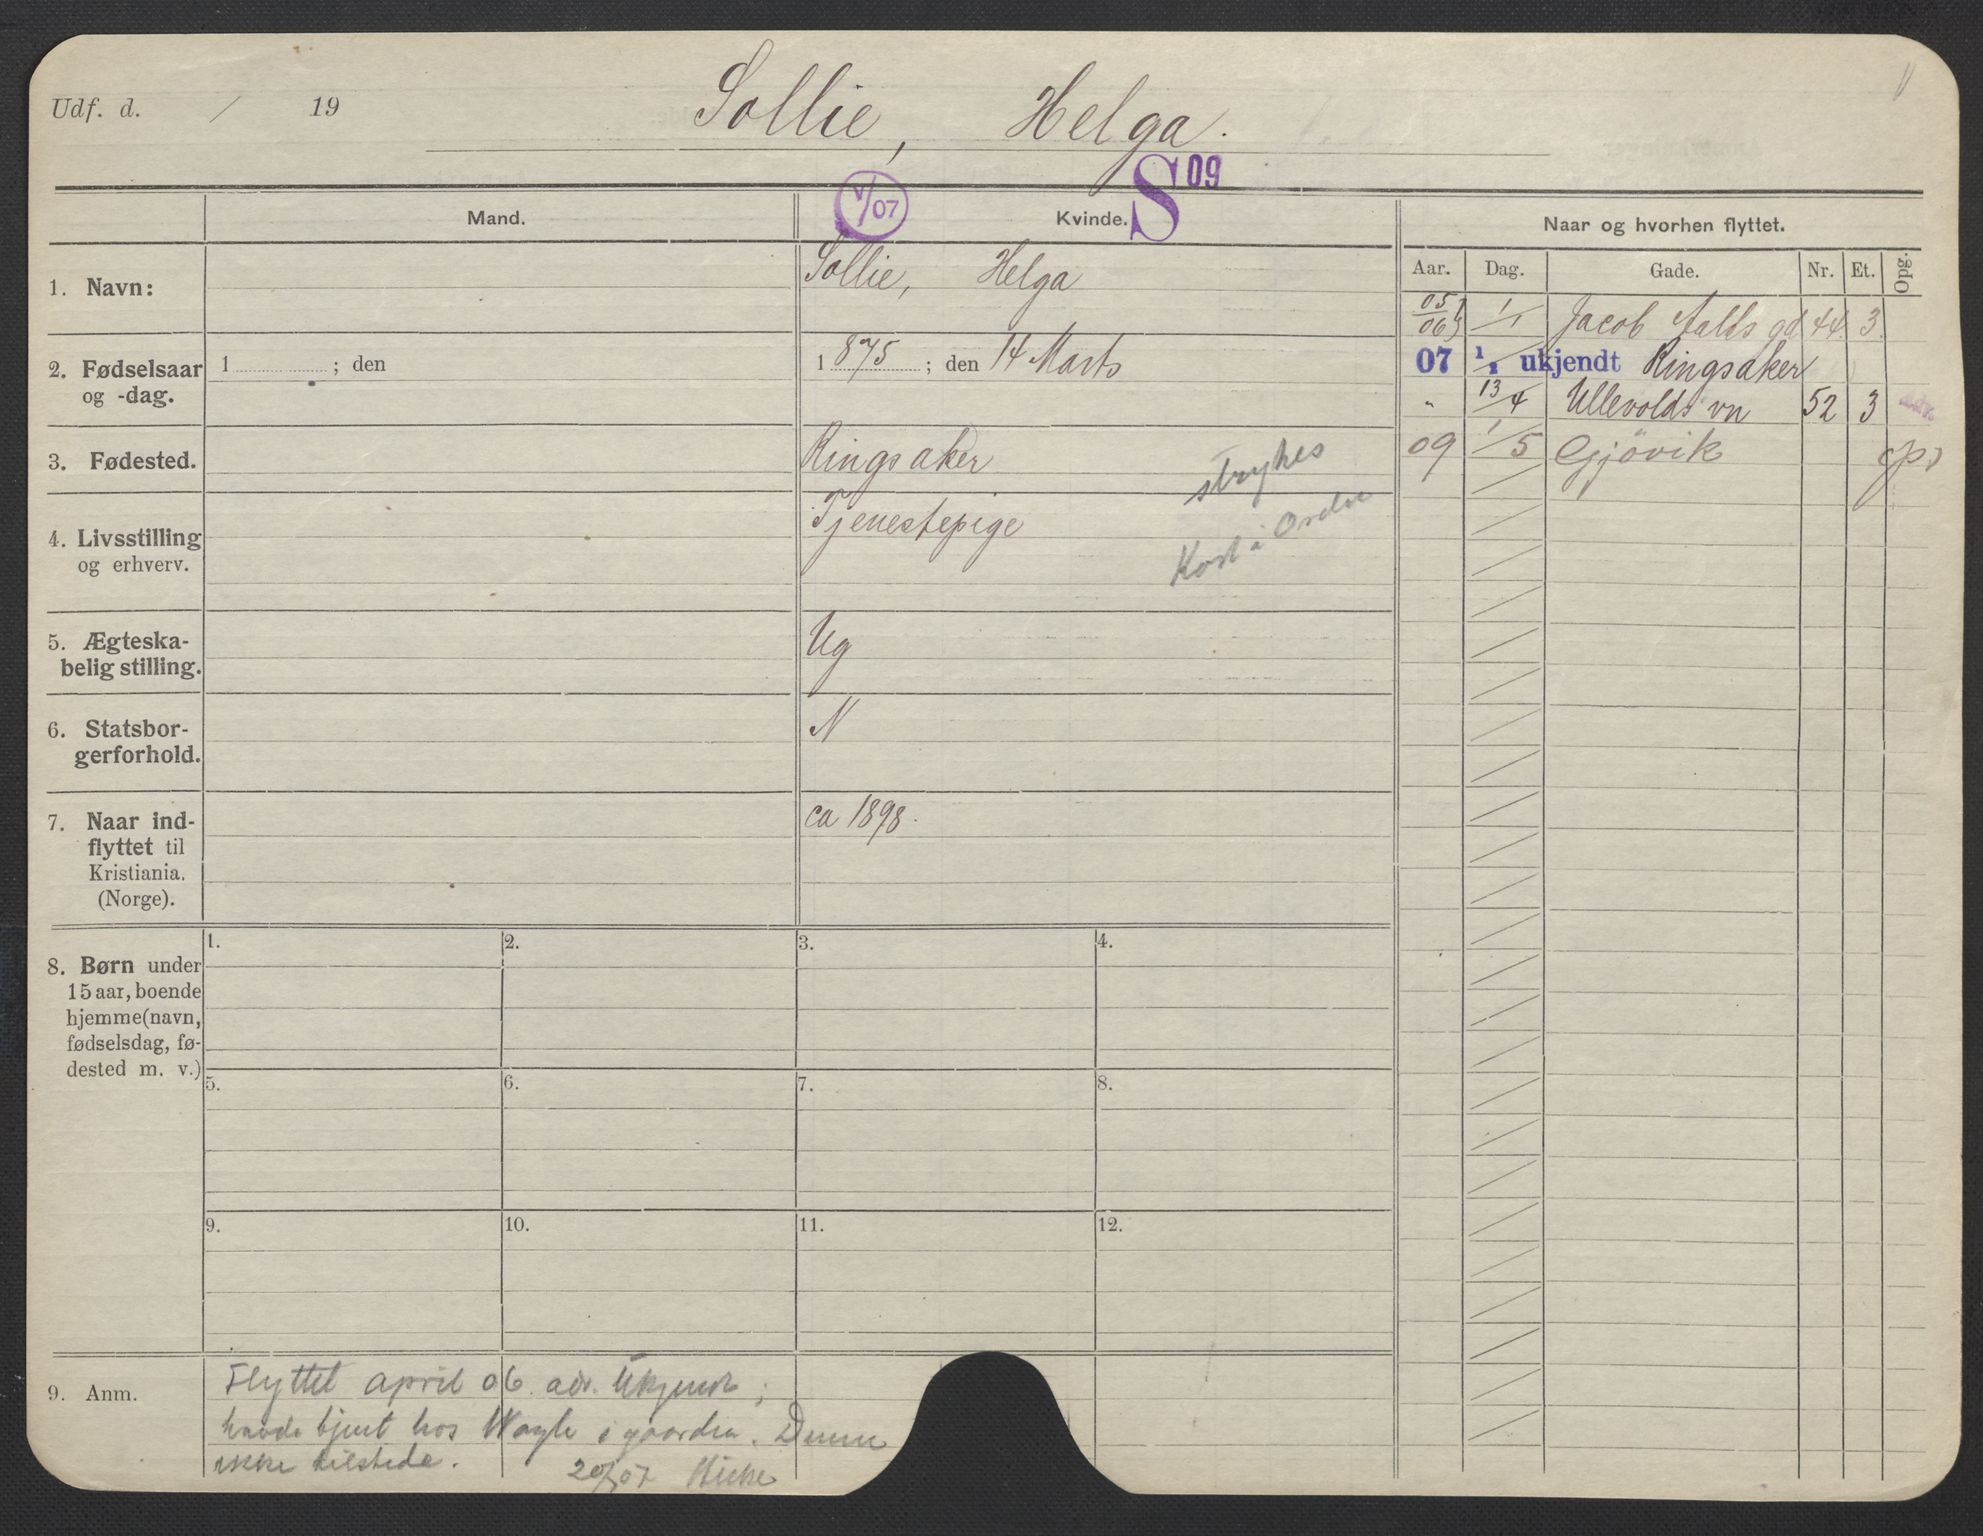 Udf. d. / 19
Sollie, Helga.
V/07
S 09
Mand.
Kvinde.
Naar og hvorhen flyttet.
Aar. Dag. Gade. Nr. Et. Opg.
1. Navn:
Sollie, Helga
2. Fødselsaar
og -dag.
1 ; den
1875 ; den 14 Marts
3. Fødested.
Ringsaker
4. Livsstilling
og erhverv.
Tjenestepige
strykes
Kort i Orden
5. Ægteska-
belig stilling.
Ug
6. Statsbor-
gerforhold.
N
7. Naar ind-
flyttet til
Kristiania.
(Norge).
ca 1898.
05/06 1/1 Jacob Aalls gd 44 3
07 1/1 ukjendt Ringsaker
" 13/4 Ullevolds vn 52 3
09 1/5 Gjövik
8. Børn under
15 aar, boende
hjemme (navn,
fødselsdag, fø-
dested m. v.)
1. 2. 3. 4.
5. 6. 7. 8.
9. 10. 11. 12.
9. Anm.
Flyttet april 06. adr. Ukjendt;
havde tjent hos i gaarden. Denne
ikke tilstede. 20/07